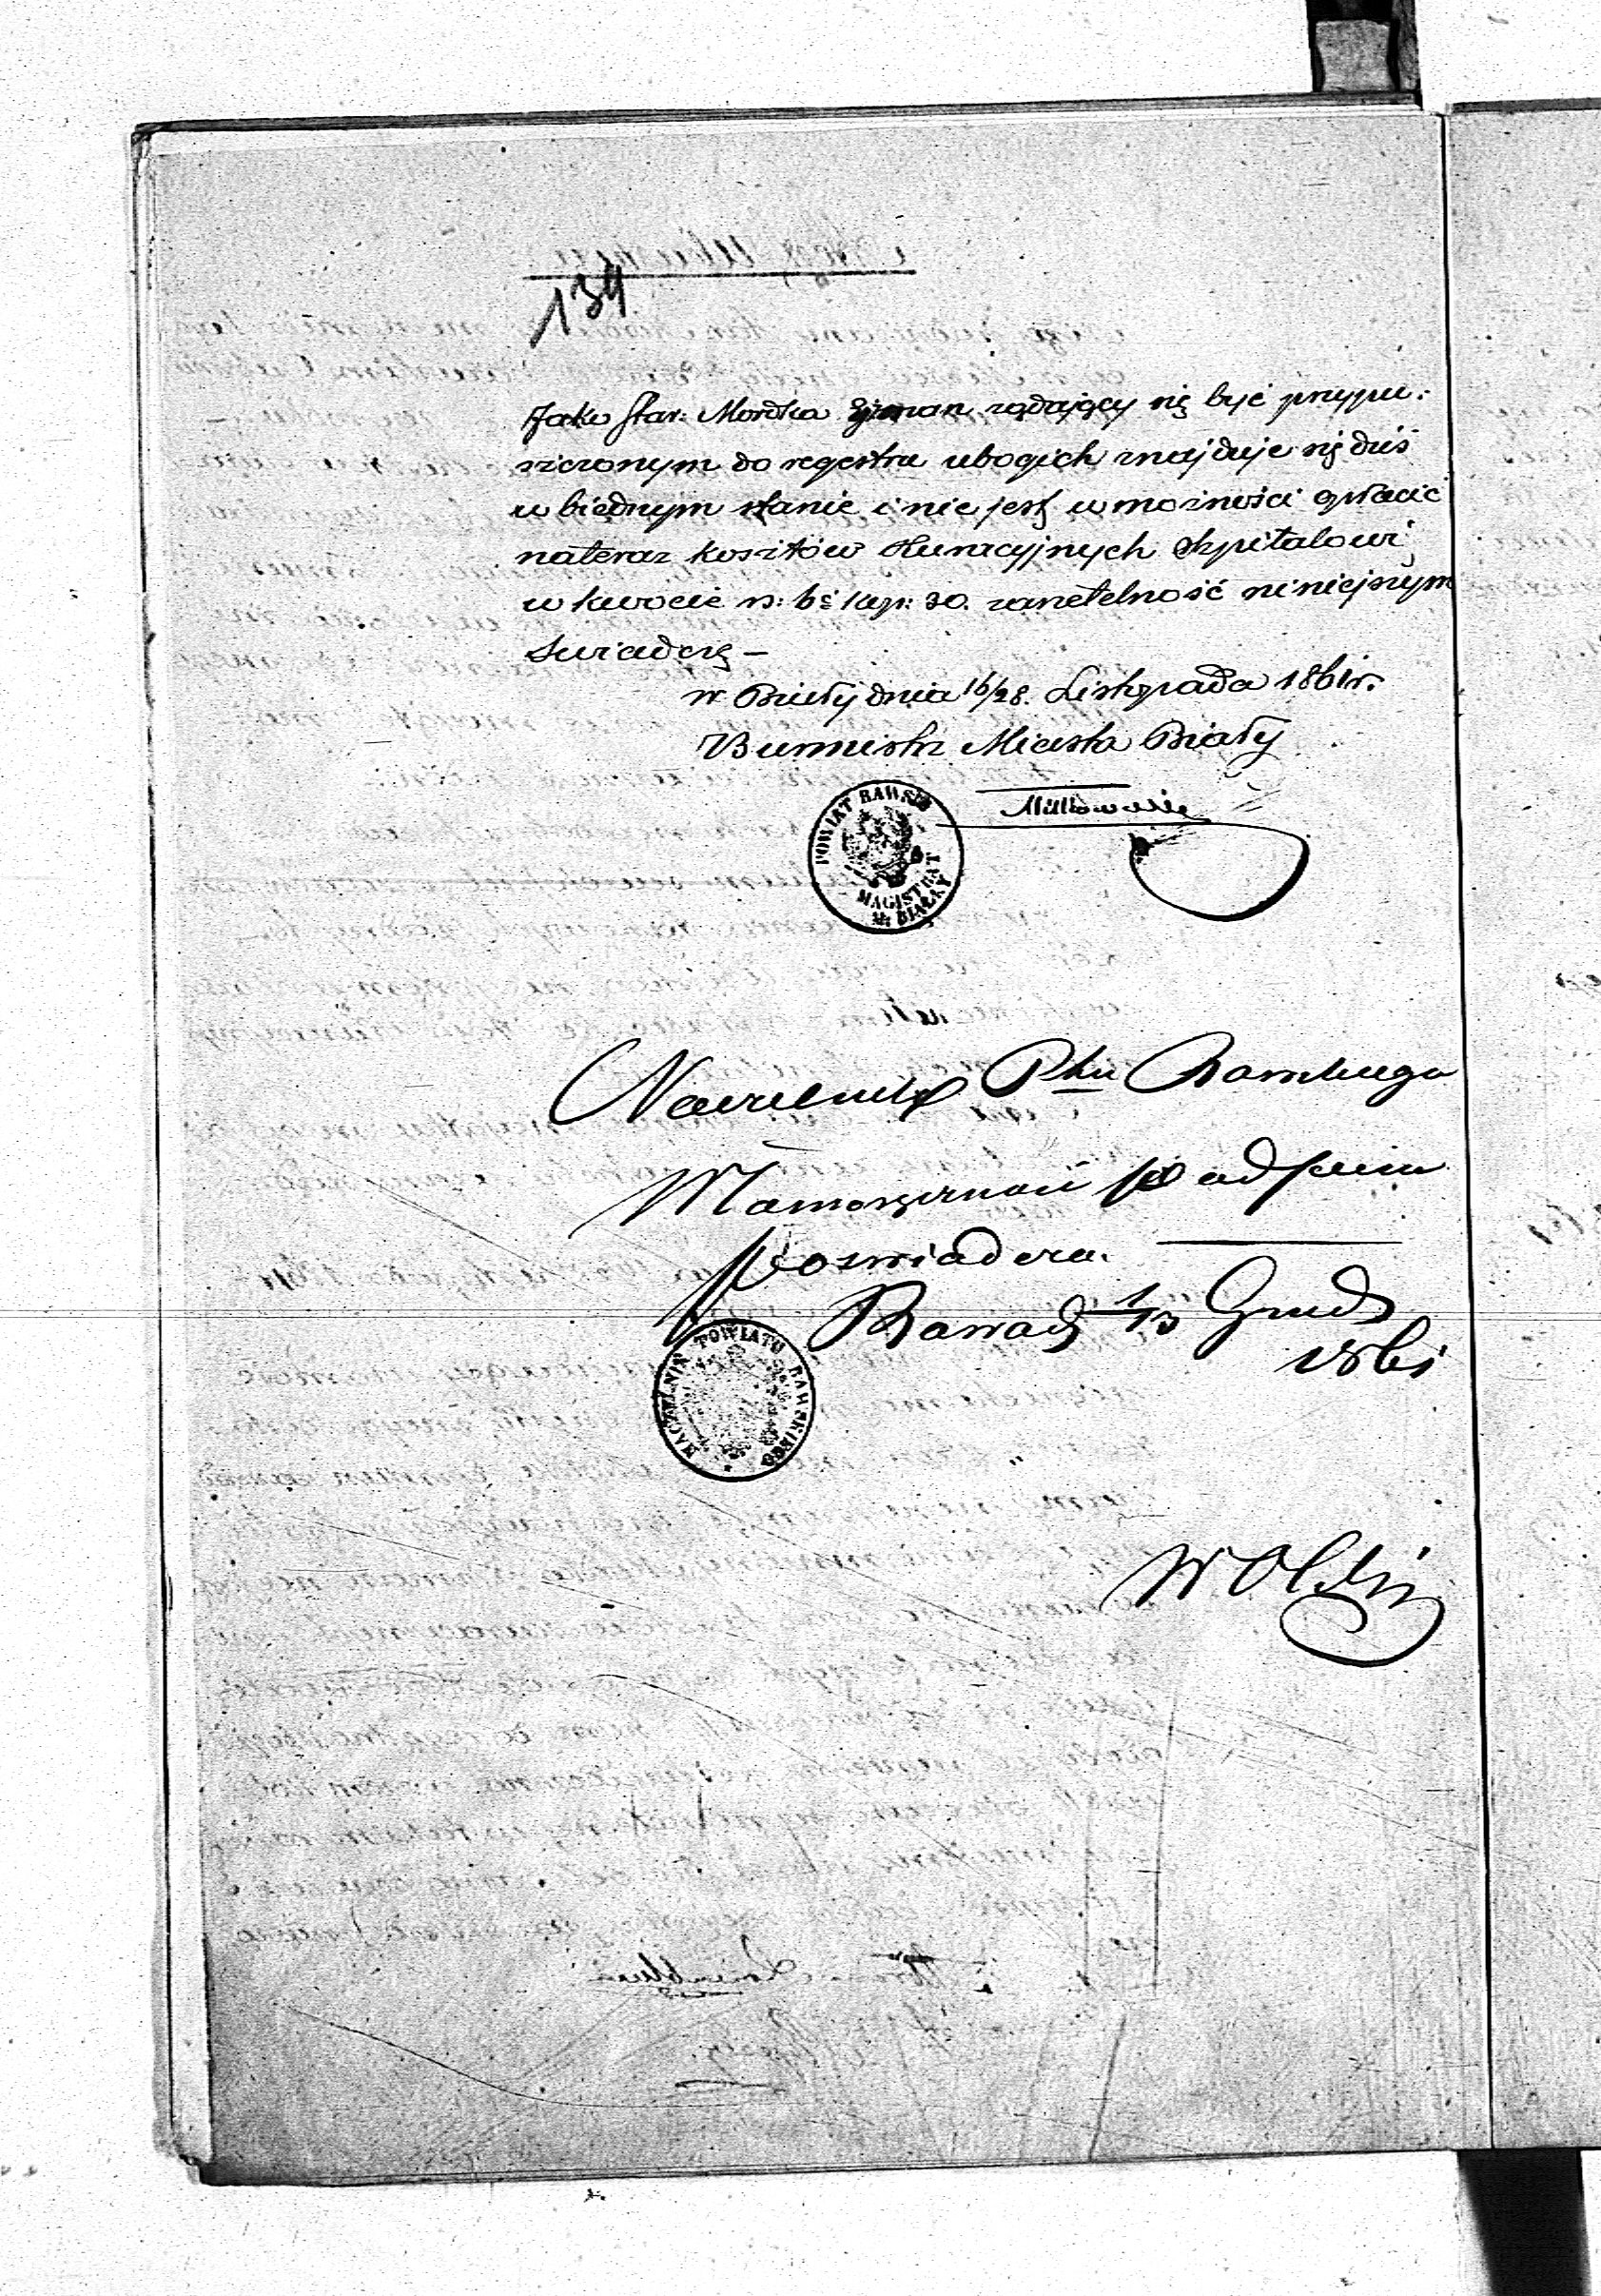 134
Jako Star: Mordka żądający się być przypu:
szczonym do regestru ubogich znajduje się dziś
w biednym stanie i nie jest w możności opłacić
nateraz kosztów Kuracyjnych Szpitalowi
w kwocie rs: 6 kop: 30. za rzetelność niniejszym
Świadczę —
w Biały dnia 16/28. Listopada 1861 r.
Burmistrz Miasta Biały
POWIAT RAWSKI
MAGISTRAT
M. BIAŁY
Naczelnik Ptu Rawskiego
Własnoręczność podpisu
poświadcza.
Rawa d 1/13 Grud
1861
NACZELNIK POWIATU RAWSKIEGO